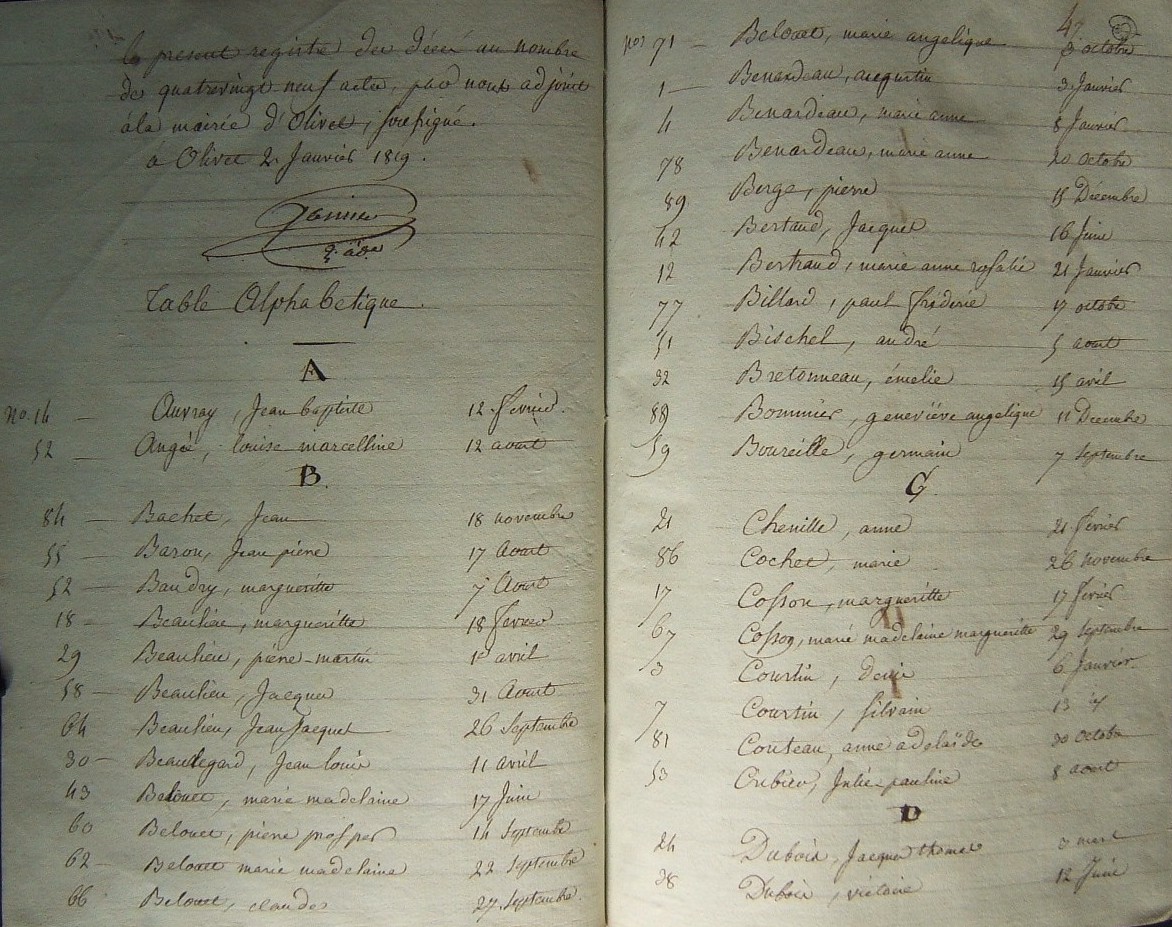 le present registre des décès au nombre
de quatrevingt neuf actes, par nous adjoint
à la mairie d'Olivet, soussigné.
à Olivet 2 Janvier 1819.
Table Alphabetique.
A
No. 14 — Auvray, Jean baptiste 12 fevrier.
52 — Angié, louise marcelline 12 aout
B.
84 — Bachet, Jean 18 novembre
55 — Baron, Jean pierre 17 Aout
52 — Baudry, margueritte 7 Aout
18 — Beaulieu, margueritte 18 fevrier
29 Beaulieu, pierre-martin 1er avril
58 — Beaulieu, Jacques 31 Aout
64 Beaulieu, Jean Jacques 26 Septembre
30 — Beauregard, Jean louis 11 avril
43 Belouet, marie madelaine 17 Juin
60 Belouet, pierre prosper 14 Septembre
62 — Belouet marie madelaine 22 Septembre
66 Belouet, claudes 27. Septembre.
47.
nos 71 — Belouet, marie angelique 9 octobre
1 — Benardeau, augustin 3 Janvier
4 Benardeau, marie anne 8 Janvier
78 Benardeau, marie anne 20 octobre
89 Berge, pierre 15 Décembre
42 Bertaud, Jacques 16 Juin
12 Bertraud, marie anne rosalie 21 Janvier
77 Billard, paul frederic 17 octobre
51 Bischel, andré 5 aout
32 Bretonneau, émelie 15 avril
88 Bommier, geneviéve angelique 11 Decembre
59 Boureille, germain 7 Septembre
C.
21 Chenille, anne 21 fevrier
86 Cochet, marie 26 novembre
17 Cosson, margueritte 17 fevrier
67 Cosson, marie madelaine margueritte 29 Septembre
3 Courtin, denis 6 Janvier.
7 Courtin, silvain 13 id
81 Couteau, anne adelaïde 30 octobre
53 Cribier, Julie pauline 8 aout
D
24 Dubois, Jacques thomas 3 mars
38 Dubois, victoire 12 Juin